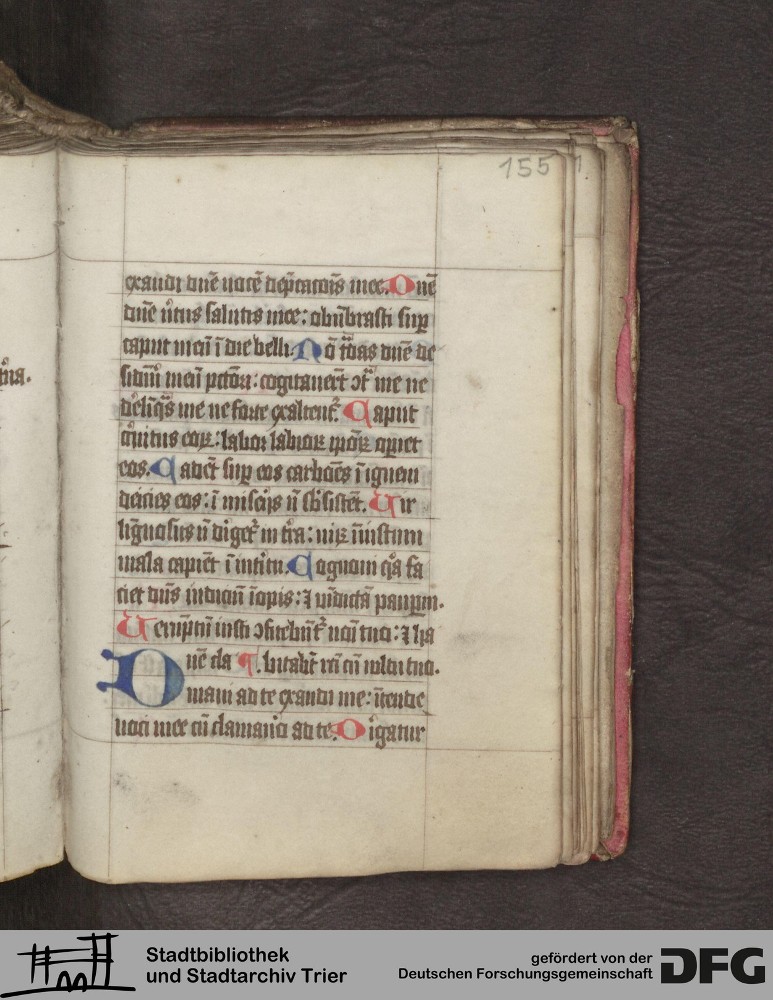 155
exaudi dnē uocē dep̄catōis mee. Dnē
dnē ūtus salutis mee: obūbrasti sup
caput meū ī die belli. Nō t̄das dnē de
siđio meo pctōri: cogitauert ꝯt͛ me ne
đeliq̄s me ne forte exaltent͛. Caput
c͛cuitus eoꝝ: labor labioꝝ ip̄oꝝ opiet
eos. Cadēt sup eos carbōes ī ignem
deicies eos: ī miseijs ñ sb̄sistēt. Uir
līguosus ñ dīget͛ in t͛ra: uiꝝ iniustum
mala capiēt ī intītu. Cognoui qͣa fa
ciet dn̄s iudiciū īopis: ⁊ uīdictā paupum.
Ueruptn̄ iusti ꝯfitebūt͛ noī tuo: ⁊ ha
bitabūt rc̄i cū uultu tuo.
Dnē cla
maui ad te exaudi me: ītende
uoci mee cū clamauo ad te. Dīgatur
Stadtbibliothek
und Stadtarchiv Trier
gefördert von der
Deutschen Forschungsgemeinschaft
DFG